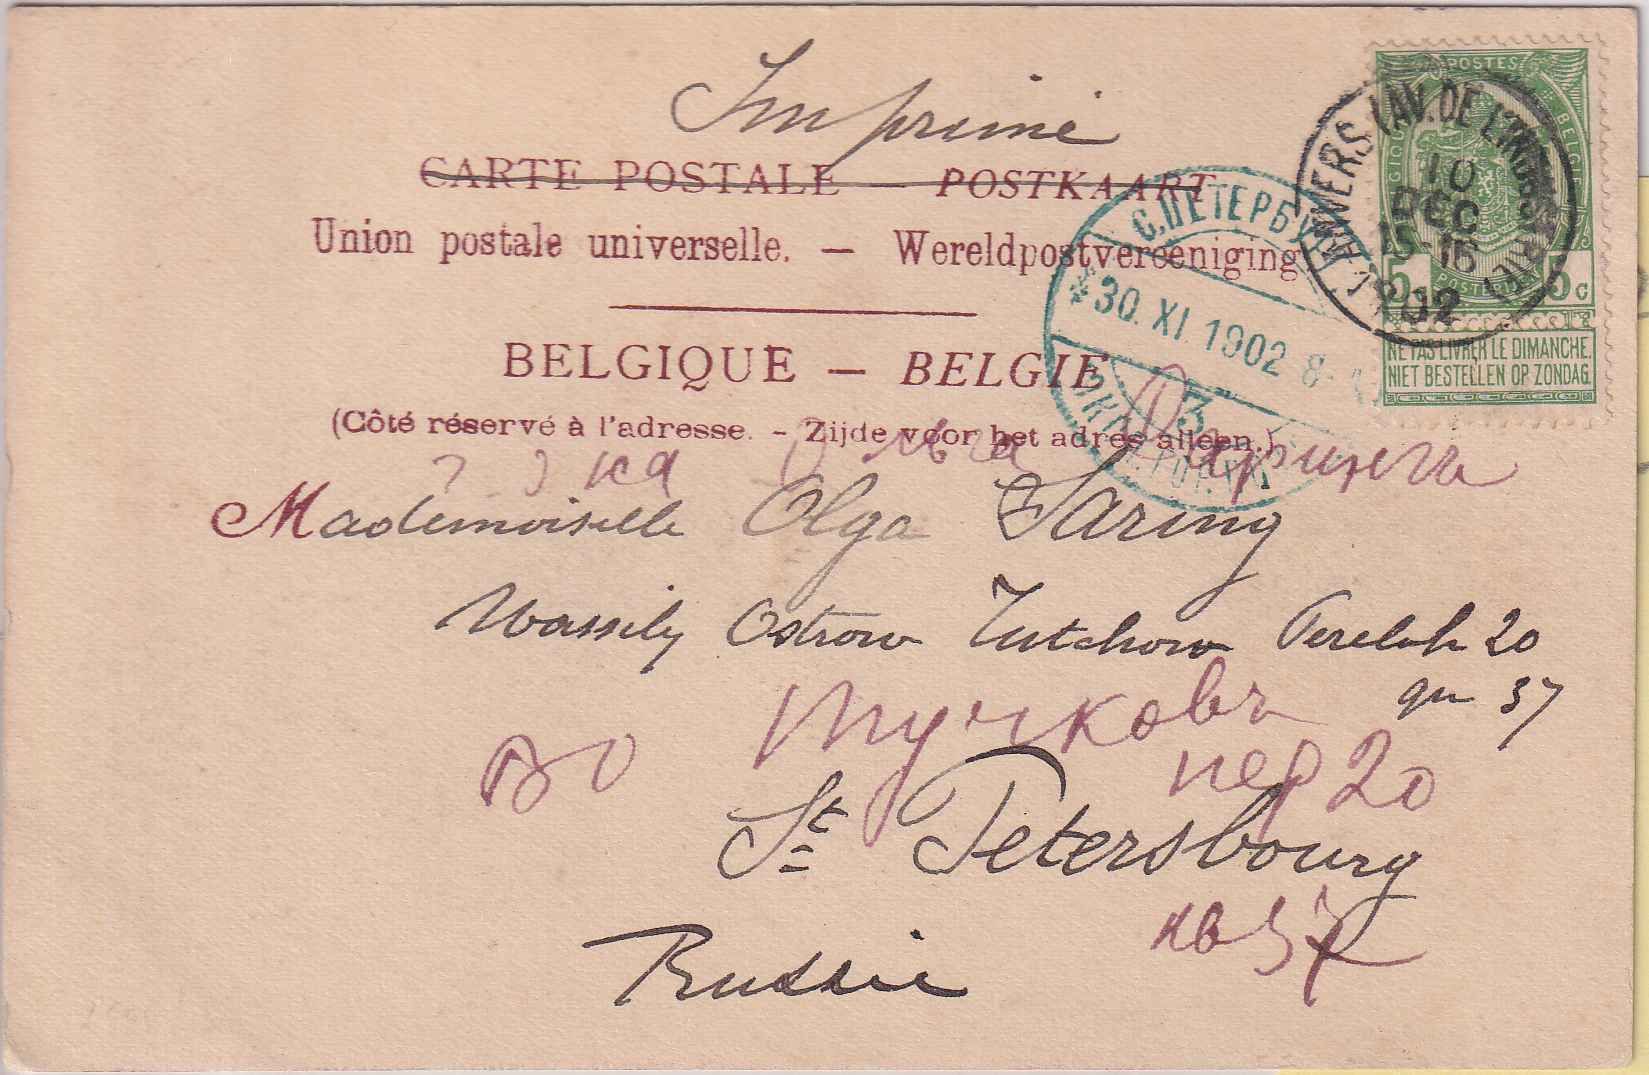 Imprimé
CARTE POSTALE — POSTKAART
Union postale universelle. — Wereldpostvereeniging
BELGIQUE — BELGIE
(Côté réservé à l'adresse. - Zijde voor het adres alleen.)
POSTES
BELGIQUE
5 5 c
NE PAS LIVRER LE DIMANCHE.
NIET BESTELLEN OP ZONDAG
ANVERS (AV. DE L'INDUSTRIE)
10
DEC
15-16
1902
С.ПЕТЕРБ
30. XI 1902 8-
3
Mademoiselle Olga Jaring
Wassily Ostrow Tutchow Pereluk 20
qu 37
ВО Тучковъ
пер 20
St Petersbourg
кв 37
Russie